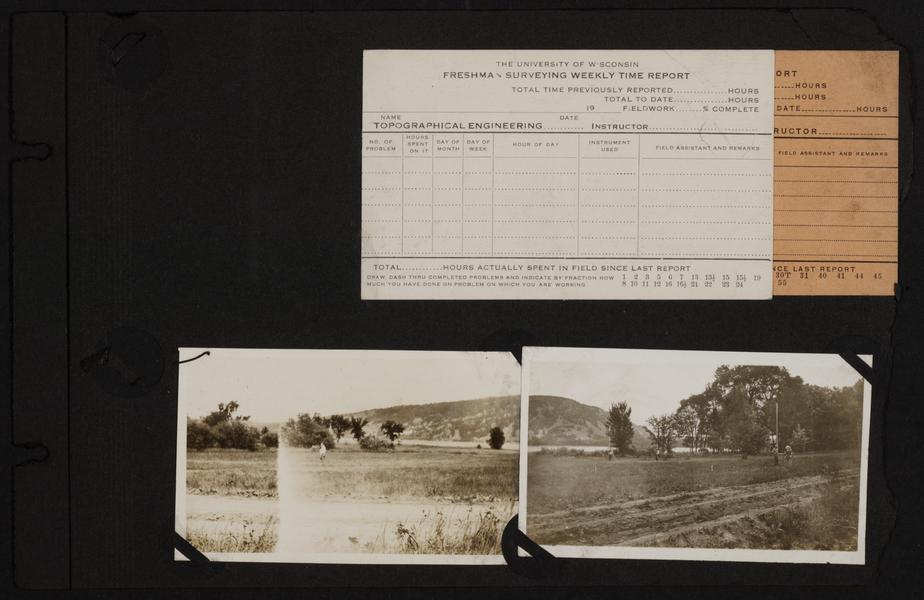 THE UNIVERSITY OF WISCONSIN
FRESHMAN SURVEYING WEEKLY TIME REPORT
TOTAL TIME PREVIOUSLY REPORTED..............HOURS
TOTAL TO DATE..............HOURS
19 FIELDWORK.......% COMPLETE
NAME DATE
TOPOGRAPHICAL ENGINEERING.......... INSTRUCTOR..............................
NO. OF PROBLEM HOURS SPENT ON IT DAY OF MONTH DAY OF WEEK HOUR OF DAY INSTRUMENT USED FIELD ASSISTANT AND REMARKS
TOTAL............HOURS ACTUALLY SPENT IN FIELD SINCE LAST REPORT
DRAW DASH THRU COMPLETED PROBLEMS AND INDICATE BY FRACTION HOW 1 2 3 5 6 7 13 13½ 15 15½ 19
MUCH YOU HAVE DONE ON PROBLEM ON WHICH YOU ARE WORKING 8 10 11 12 16 16½ 21 22 23 24
ORT
......HOURS
......HOURS
DATE..............HOURS
RUCTOR....................
FIELD ASSISTANT AND REMARKS
NCE LAST REPORT
30T 31 40 41 44 45
55